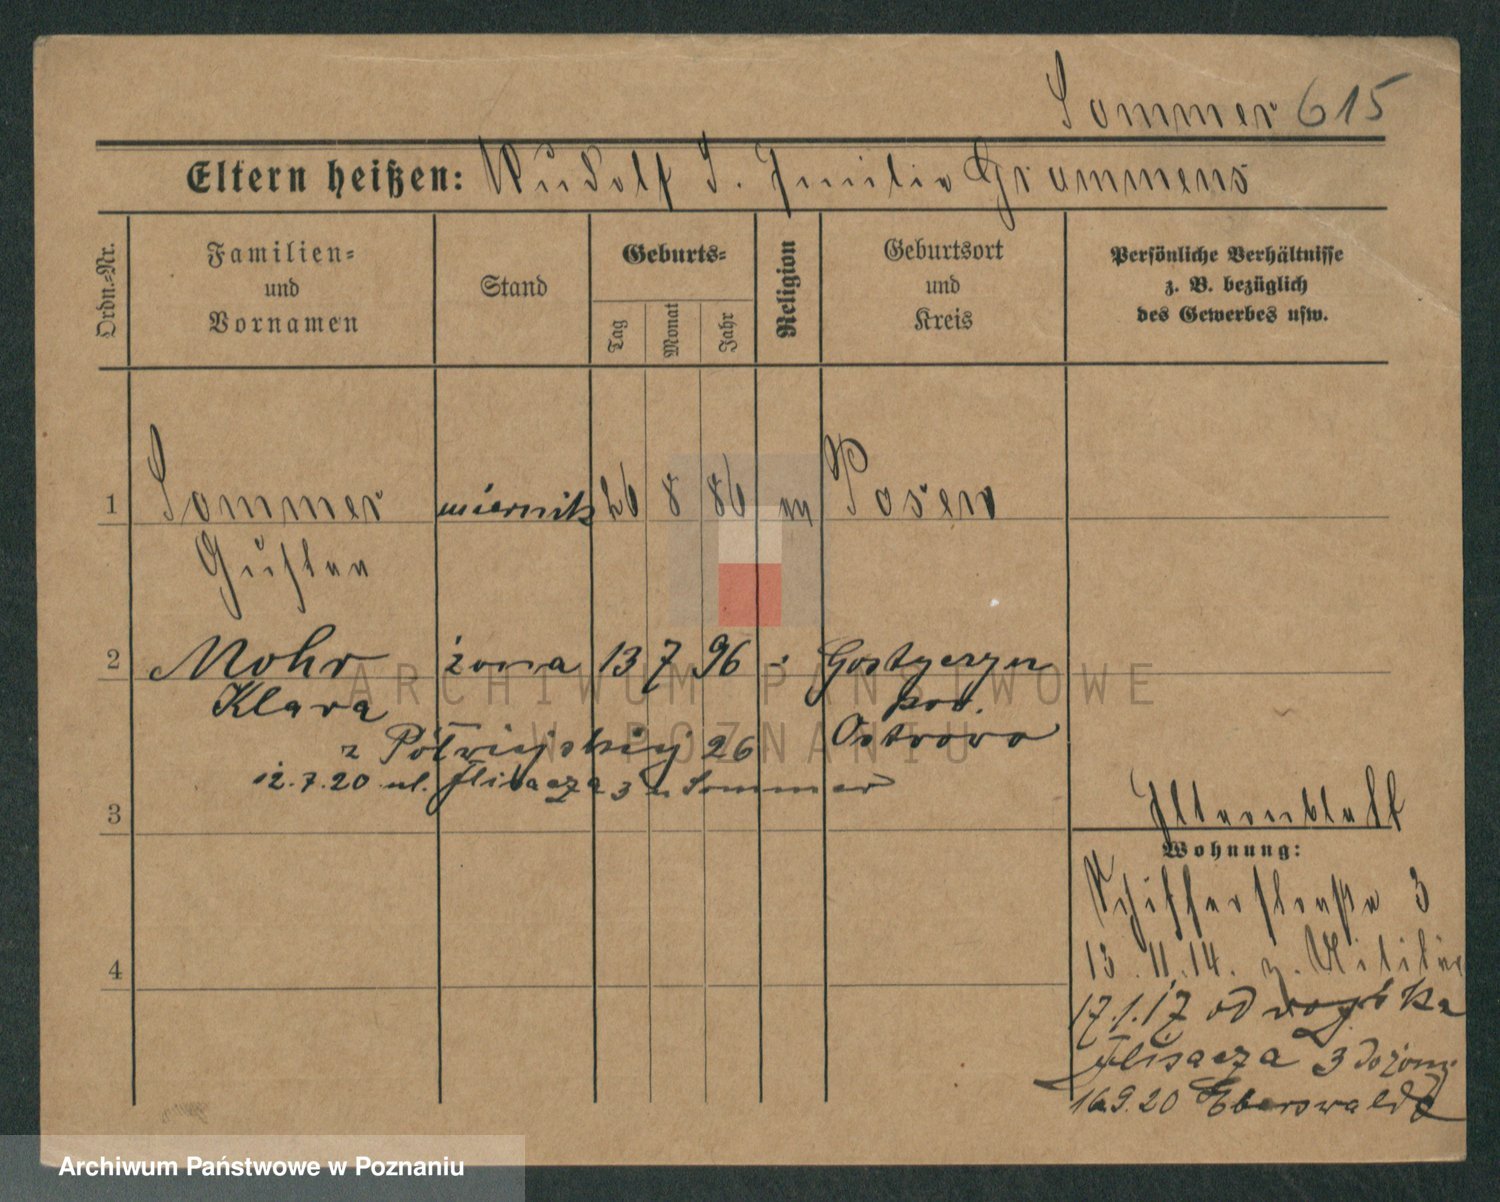 Sommer 615
Eltern heißen: Rudolf S. Emilie Grammens
Ordn.-Nr.
Familien-
und
Vornamen
Stand
Geburts-
Tag
Monat
Jahr
Religion
Geburtsort
und
Kreis
Persönliche Verhältnisse
z. B. bezüglich
des Gewerbes usw.
1 Sommer miernik 26 8 86 m Posen
Gustav
2 Mohr żona 13 7 96 Gostyczyn
Klara pow.
Ostrowo
z Półwiejskiej 26
12.7.20 ul. Flisacza 3 u Sommer
3
Elternblatt
Wohnung:
Schifferstraße 3
13.11.14. z. Militär
4
17.1.17 od wojska
Flisacza 3 do żony
16.9.20 Eberswalde
ARCHIWUM PAŃSTWOWE
W POZNANIU
Archiwum Państwowe w Poznaniu